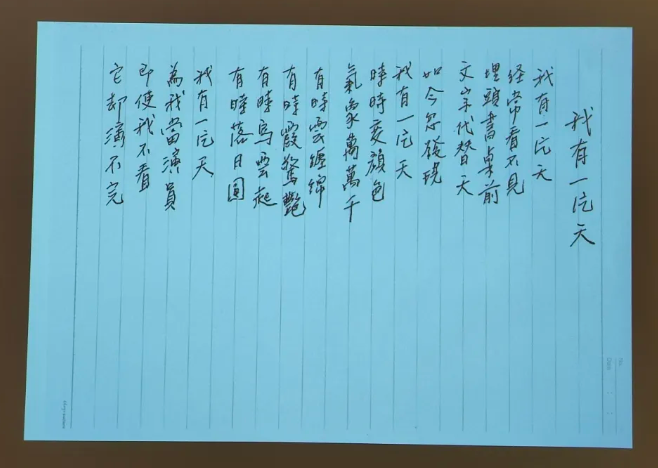 我有一片天
我有一片天
經常看不見
埋頭書桌前
文字代替天
如今忽發現
我有一片天
時時变顏色
氣象萬萬千
有時雲纏綿
有時霞驚艷
有時烏雲起
有時落日圓
我有一片天
為我當演員
即使我不看
它却演不完
No.
Date